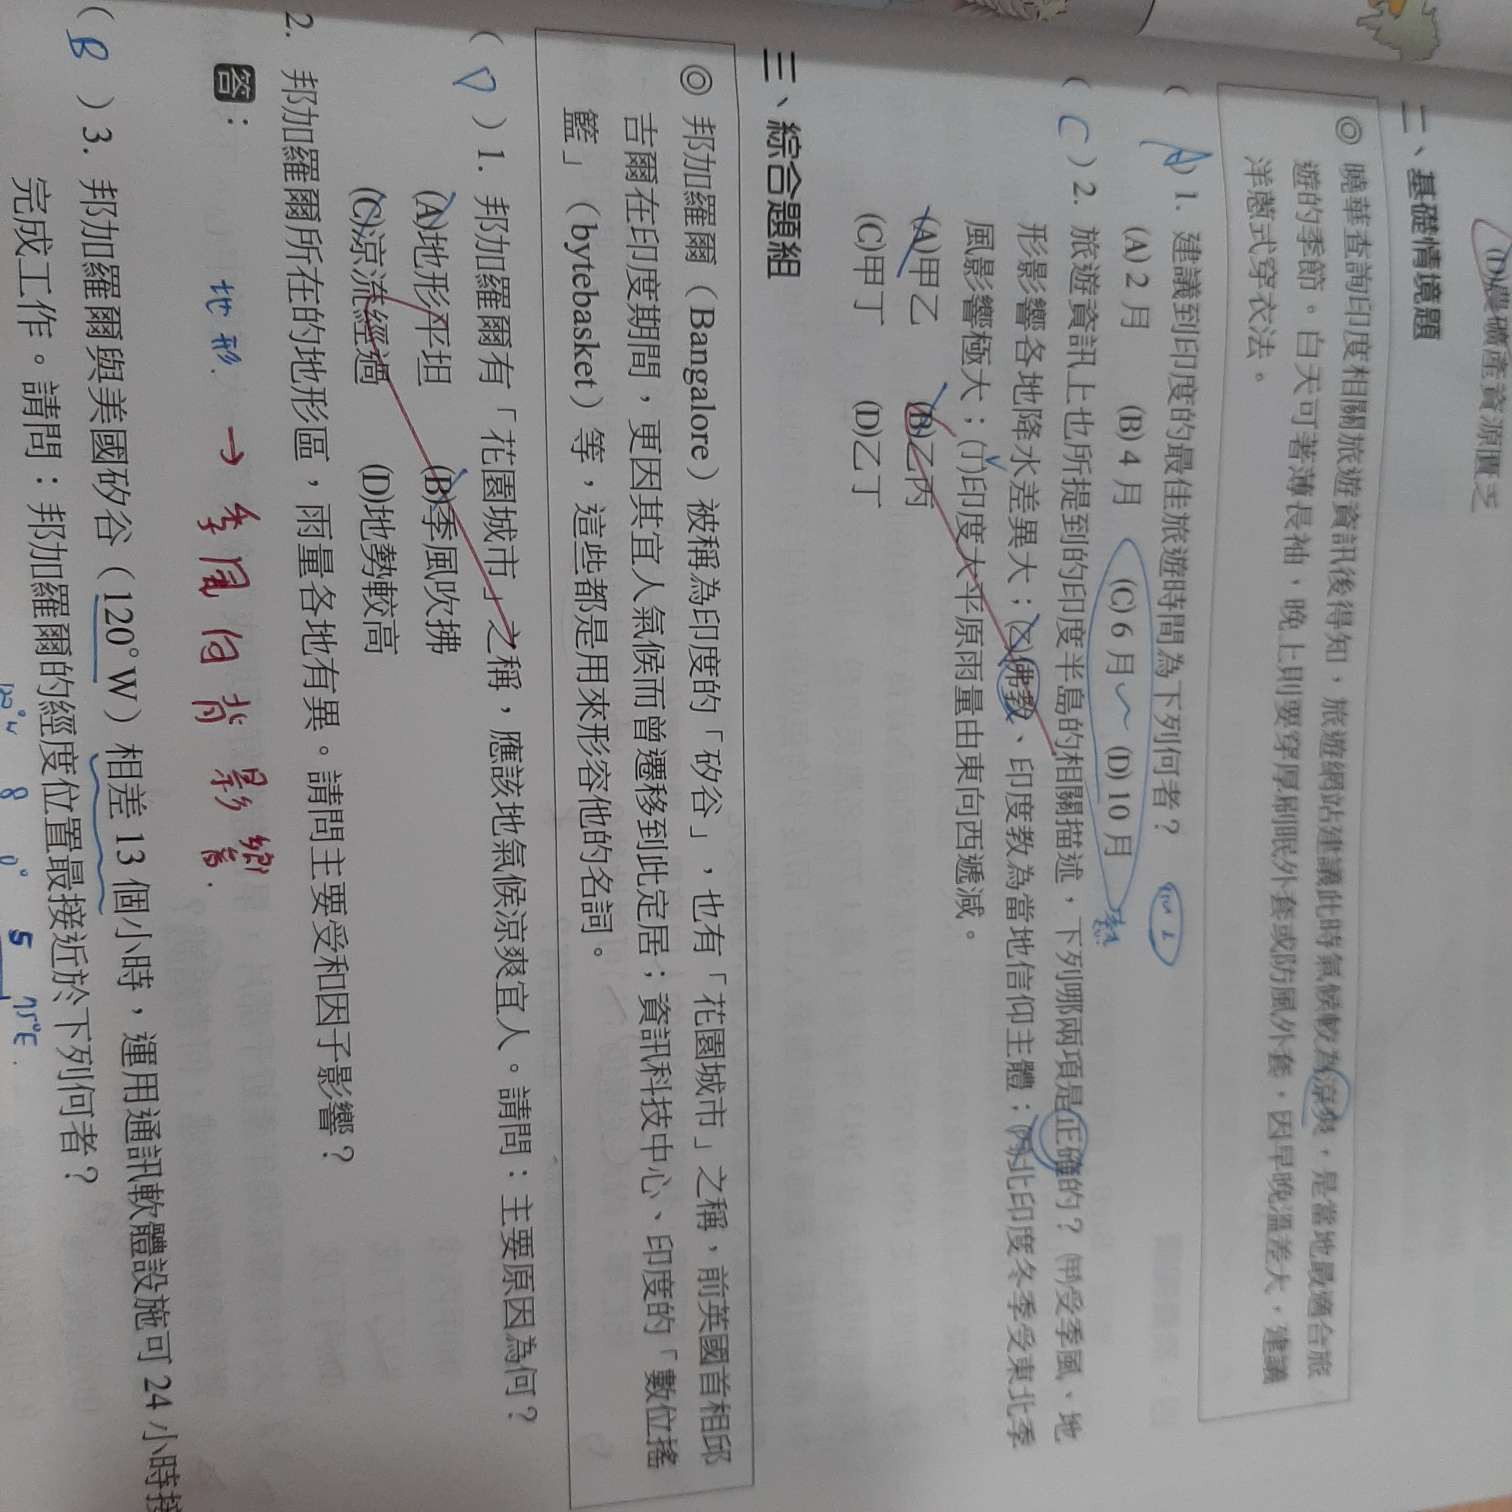 (D)農礦產資源匱乏
二、基礎情境題
◎ 曉華查詢印度相關旅遊資訊後得知，旅遊網站建議此時氣候較為涼爽，是當地最適合旅
遊的季節。白天可著薄長袖、晚上則要穿厚刷毛外套或防風外套，因早晚溫差大，建議
洋蔥式穿衣法。
( A ) 1. 建議到印度的最佳旅遊時間為下列何者？
(A) 2 月 (B) 4 月 (C) 6 月 (D) 10 月
熱
( C ) 2. 旅遊資訊上也所提到的印度半島的相關描述，下列哪兩項是正確的？(甲)受季風、地
形影響各地降水差異大；(乙)佛教、印度教為當地信仰主體；(丙)北印度冬季受東北季
風影響極大；(丁)印度大平原雨量由東向西遞減。
(A)甲乙 (B)乙丙
(C)甲丁 (D)乙丁
三、綜合題組
◎ 邦加羅爾（Bangalore）被稱為印度的「矽谷」，也有「花園城市」之稱，前英國首相邱
吉爾在印度期間，更因其宜人氣候而曾遷移到此定居；資訊科技中心、印度的「數位搖
籃」（bytebasket）等，這些都是用來形容他的名詞。
( D ) 1. 邦加羅爾有「花園城市」之稱，應該地氣候涼爽宜人。請問：主要原因為何？
(A)地形平坦 (B)季風吹拂
(C)涼流經過 (D)地勢較高
2. 邦加羅爾所在的地形區，雨量各地有異。請問主要受和因子影響？
答：
地形. → 季風向背 影響.
( B ) 3. 邦加羅爾與美國矽谷（120°W）相差 13 個小時，運用通訊軟體設施可 24 小時接
完成工作。請問：邦加羅爾的經度位置最接近於下列何者？
120°W 8 0° 5 75°E.